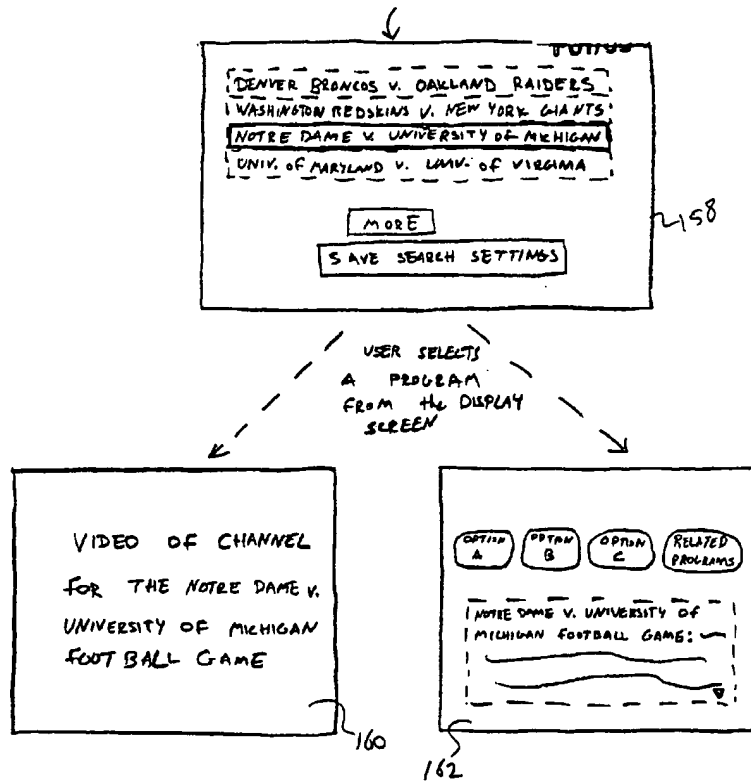 DENVER BRONCOS V. OAKLAND RAIDERS
WASHINGTON REDSKINS V. NEW YORK GIANTS
NOTRE DAME V. UNIVERSITY OF MICHIGAN
UNIV. OF MARYLAND V. UNIV. OF VIRGINIA
MORE
SAVE SEARCH SETTINGS
158
USER SELECTS
A PROGRAM
FROM the DISPLAY
SCREEN
VIDEO OF CHANNEL
FOR THE NOTRE DAME V.
UNIVERSITY OF MICHIGAN
FOOTBALL GAME
160
OPTION A
OPTION B
OPTION C
RELATED PROGRAMS
NOTRE DAME V. UNIVERSITY OF
MICHIGAN FOOTBALL GAME:
162